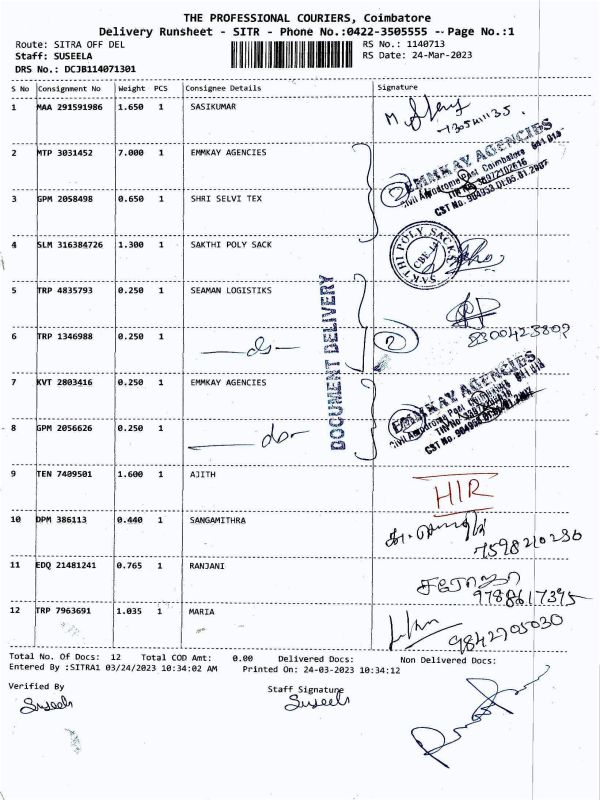 THE PROFESSIONAL COURIERS, Coimbatore
Delivery Runsheet - SITR - Phone No.:0422-3505555 -- Page No.:1
Route: SITRA OFF DEL
Staff: SUSEELA
DRS No.: DCJB114071301
RS No.: 1140713
RS Date: 24-Mar-2023
S No Consignment No Weight PCS Consignee Details Signature
1 MAA 291591986 1.650 1 SASIKUMAR
2 MTP 3031452 7.000 1 EMMKAY AGENCIES
EMMKAY AGENCIES
Civil Aerodrome Post Coimbatore 641 014
CST No. 904953 Dt.05.01.2007
3 GPM 2058498 0.650 1 SHRI SELVI TEX
2
4 SLM 316384726 1.300 1 SAKTHI POLY SACK
SAKTHI POLY SACK
CBE-14
5 TRP 4835793 0.250 1 SEAMAN LOGISTIKS
8300423802
6 TRP 1346988 0.250 1 —do—
2
DOCUMENT DELIVERY
7 KVT 2803416 0.250 1 EMMKAY AGENCIES
EMMKAY AGENCIES
Civil Aerodrome Post Coimbatore 641 014
CST No. 904953 Dt.05.01.2007
8 GPM 2056626 0.250 1 —do—
9 TEN 7409501 1.600 1 AJITH
HIR
10 DPM 386113 0.440 1 SANGAMITHRA
7598210236
11 EDQ 21481241 0.765 1 RANJANI
சரோஜா
9788617395
12 TRP 7963691 1.035 1 MARIA
9842705030
Total No. Of Docs: 12 Total COD Amt: 0.00 Delivered Docs: Non Delivered Docs:
Entered By :SITRA1 03/24/2023 10:34:02 AM Printed On: 24-03-2023 10:34:12
Verified By
Suseela
Staff Signature
Suseela